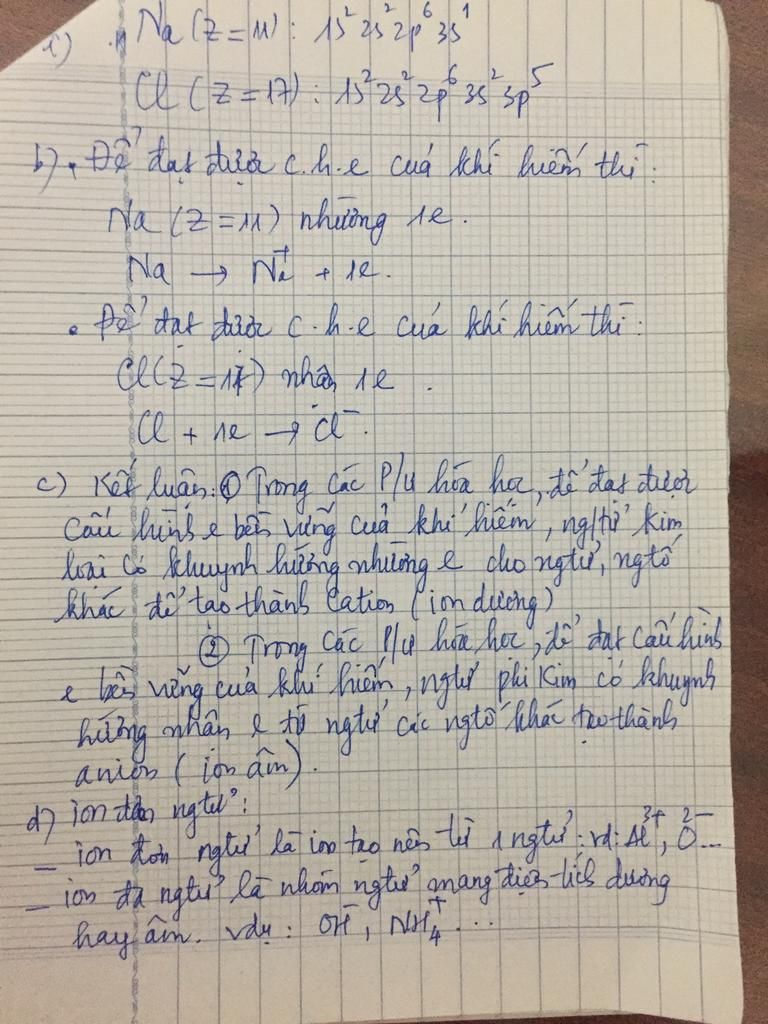 a) Na (Z = 11) : 1s² 2s² 2p⁶ 3s¹
Cl (Z = 17) : 1s² 2s² 2p⁶ 3s² 3p⁵
b). Để đạt được c.h.e của khí hiếm thì :
Na (Z = 11) nhường 1e.
Na → Na⁺ + 1e.
• Để đạt được c.h.e của khí hiếm thì :
Cl (Z = 17) nhận 1e .
Cl + 1e → Cl⁻.
c) Kết luận: ① Trong các P/ư hóa học, để đạt được
cấu hình e bền vững của khí hiếm, ng/tử kim
loại có khuynh hướng nhường e cho ngtử, ngtố
khác để tạo thành Cation (ion dương)
② Trong các P/ư hóa học, để đạt cấu hình
e bền vững của khí hiếm, ngtử phi kim có khuynh
hướng nhận e từ ngtử các ngtố khác tạo thành
anion (ion âm).
d) ion đơn ngtử :
_ ion đơn ngtử là ion tạo nên từ 1 ngtử : vd: Al³⁺, O²⁻...
_ ion đa ngtử là nhóm ngtử mang điện tích dương
hay âm. vdụ : OH⁻, NH₄⁺ ...